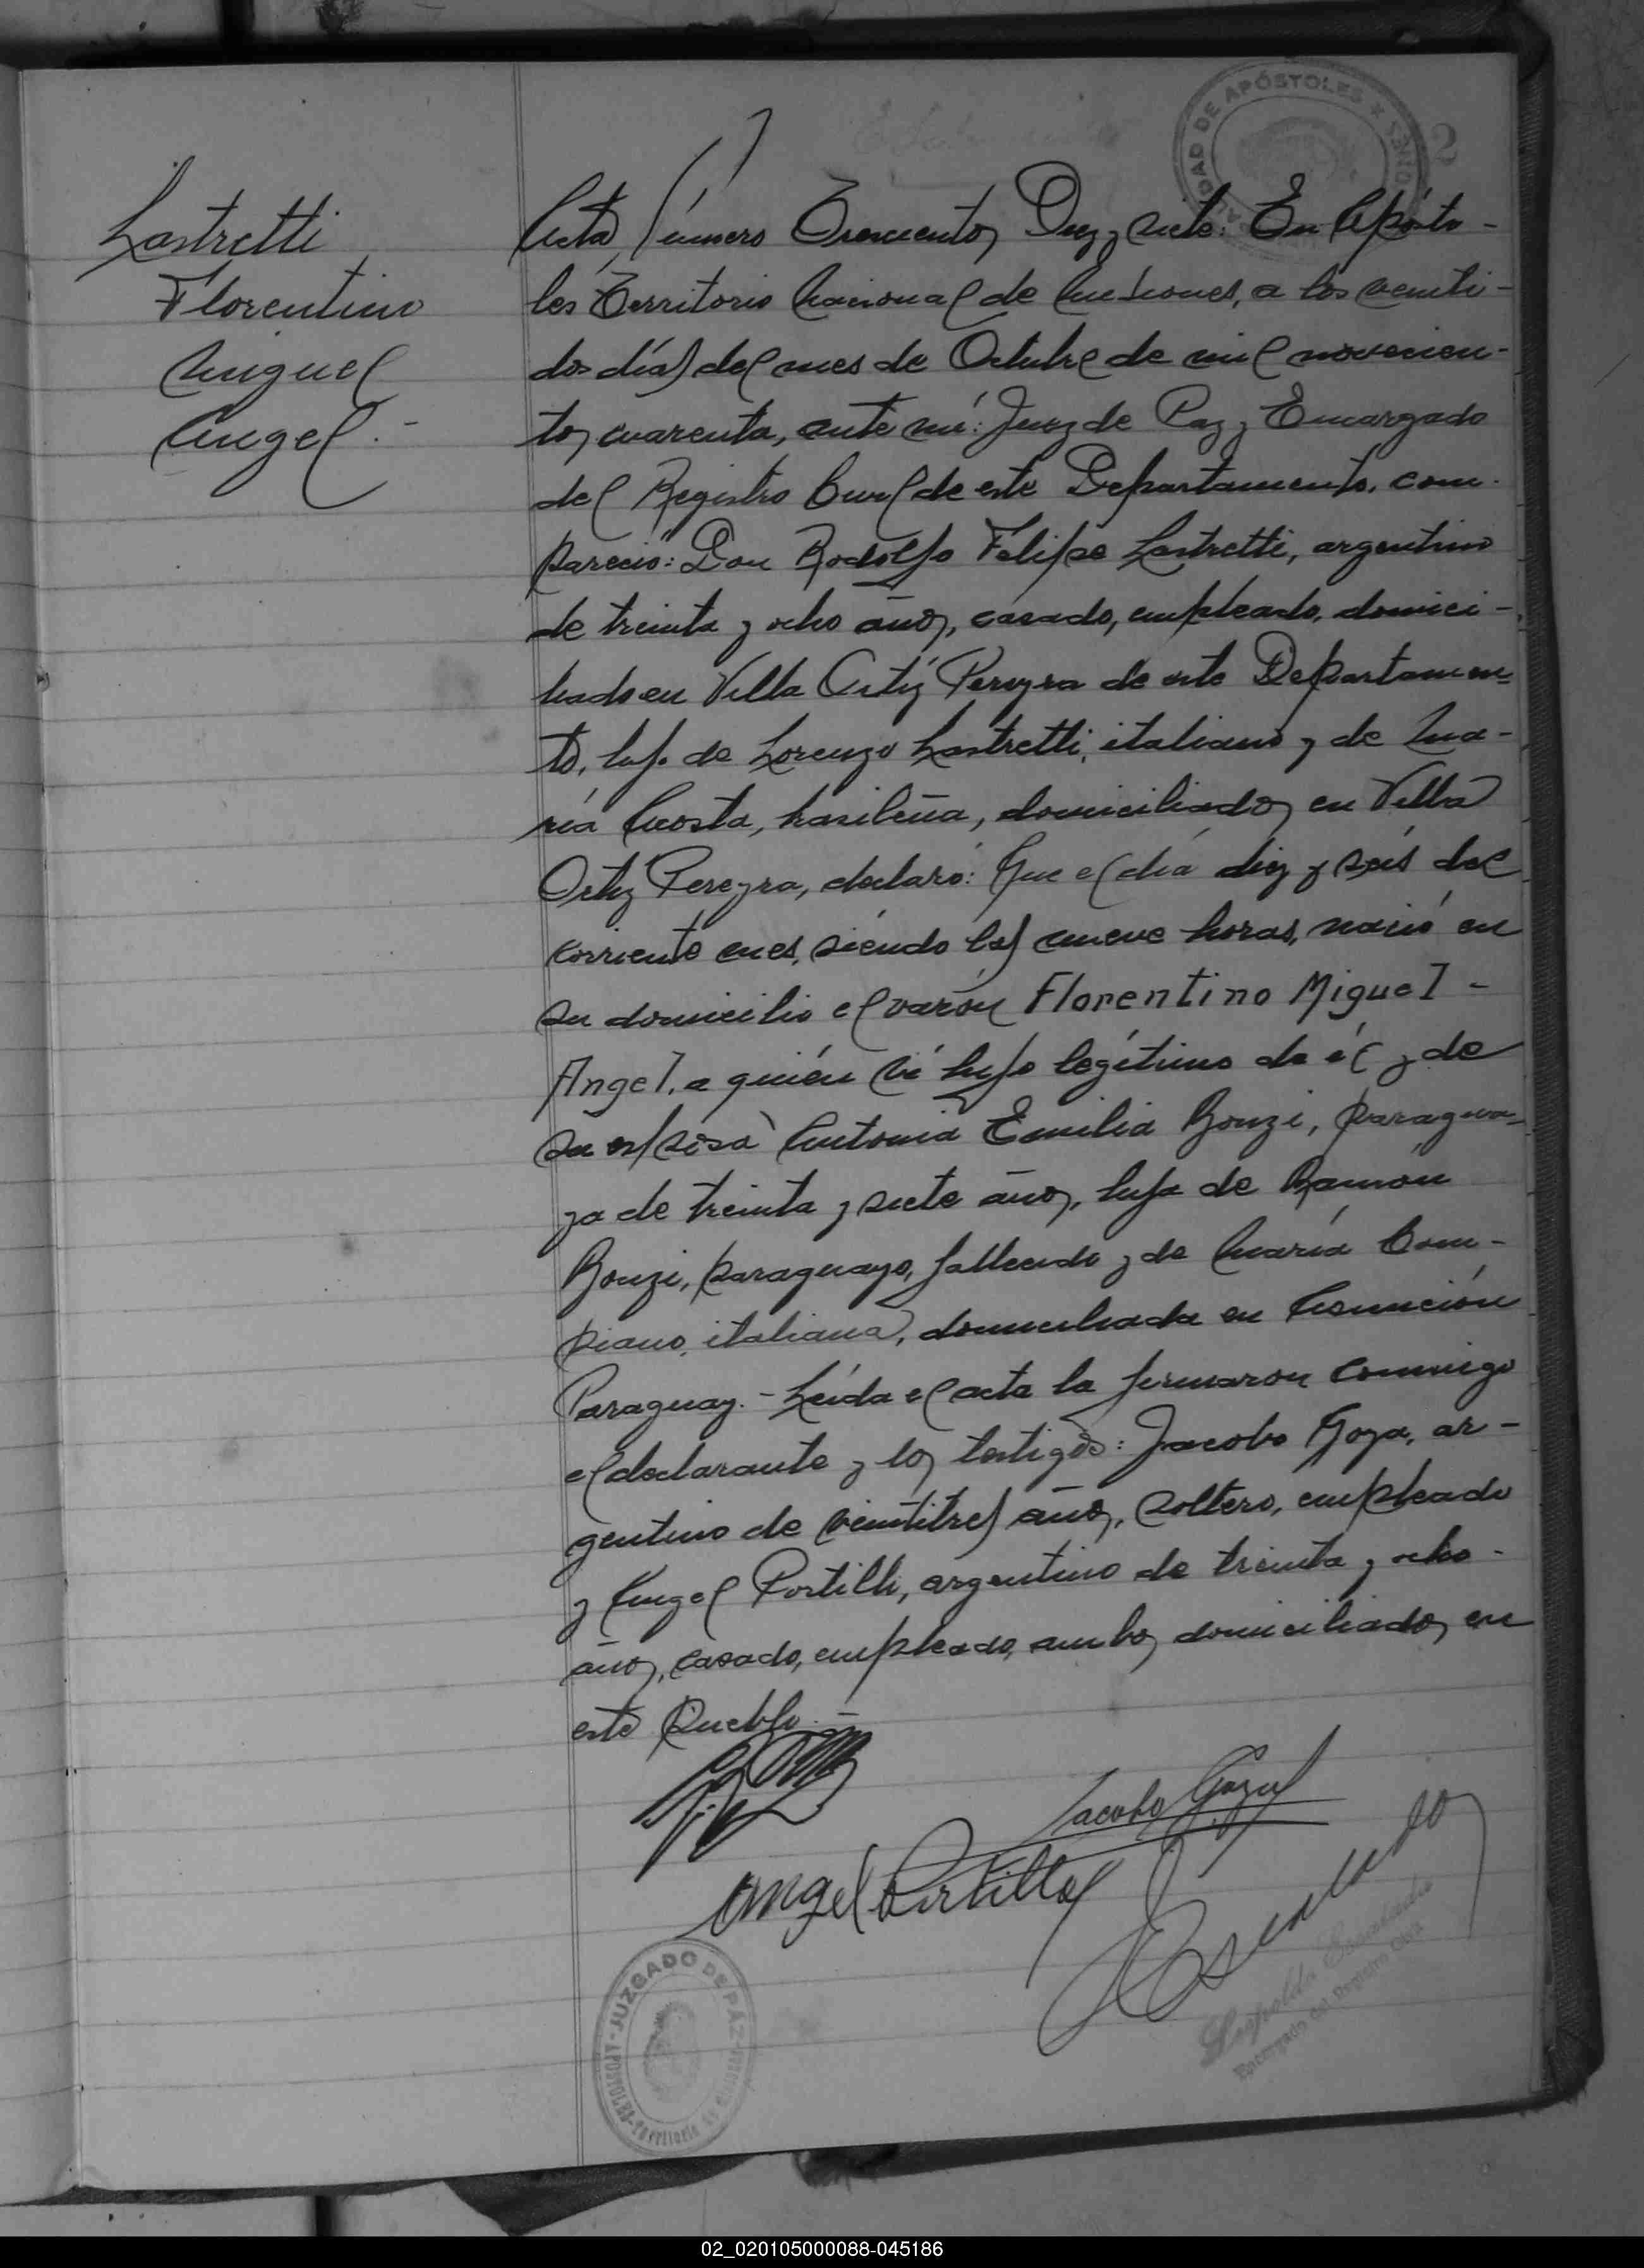 Lastretti
Florentino
Miguel
Angel.-
MUNICIPALIDAD DE APÓSTOLES
2
Acta Número Trescientos Diez y siete: En Apósto-
les Territorio Nacional de Misiones, a los veinti-
dos días del mes de Octubre de mil novecien-
tos cuarenta, ante mí: Juez de Paz y Encargado
del Registro Civil de este Departamento, com-
pareció: Don Rodolfo Felipe Lastretti, argentino
de treinta y ocho años, casado, empleado, domici-
liado en Villa Ortiz Pereyra de este Departamen-
to, hijo de Lorenzo Lastretti, italiano y de Ma-
ría Acosta, brasileña, domiciliados en Villa
Ortiz Pereyra, declaró: Que el día diez y seis del
corriente mes, siendo las nueve horas, nació en
su domicilio el varón Florentino Miguel -
Angel, a quién ví hijo legítimo de él y de
su esposa Antonia Emilia Bonzi, paragua-
ya de treinta y siete años, hija de Ramón
Bonzi, paraguayo, fallecido y de María Com-
piano, italiana, domiciliada en Asunción
Paraguay.- Leída el acta la firmaron conmigo
el declarante y los testigos: Jacobo Goya, ar-
gentino de veintitres años, soltero, empleado
y Angel Portillo, argentino de treinta y ocho-
años, casado, empleado, ambos domiciliados en
este Pueblo.-
Angel Portillo
JUZGADO DE PAZ
APOSTOLES - Territorio de Misiones
Leopoldo Escalada
Encargado del Registro Civil
02_020105000088-045186